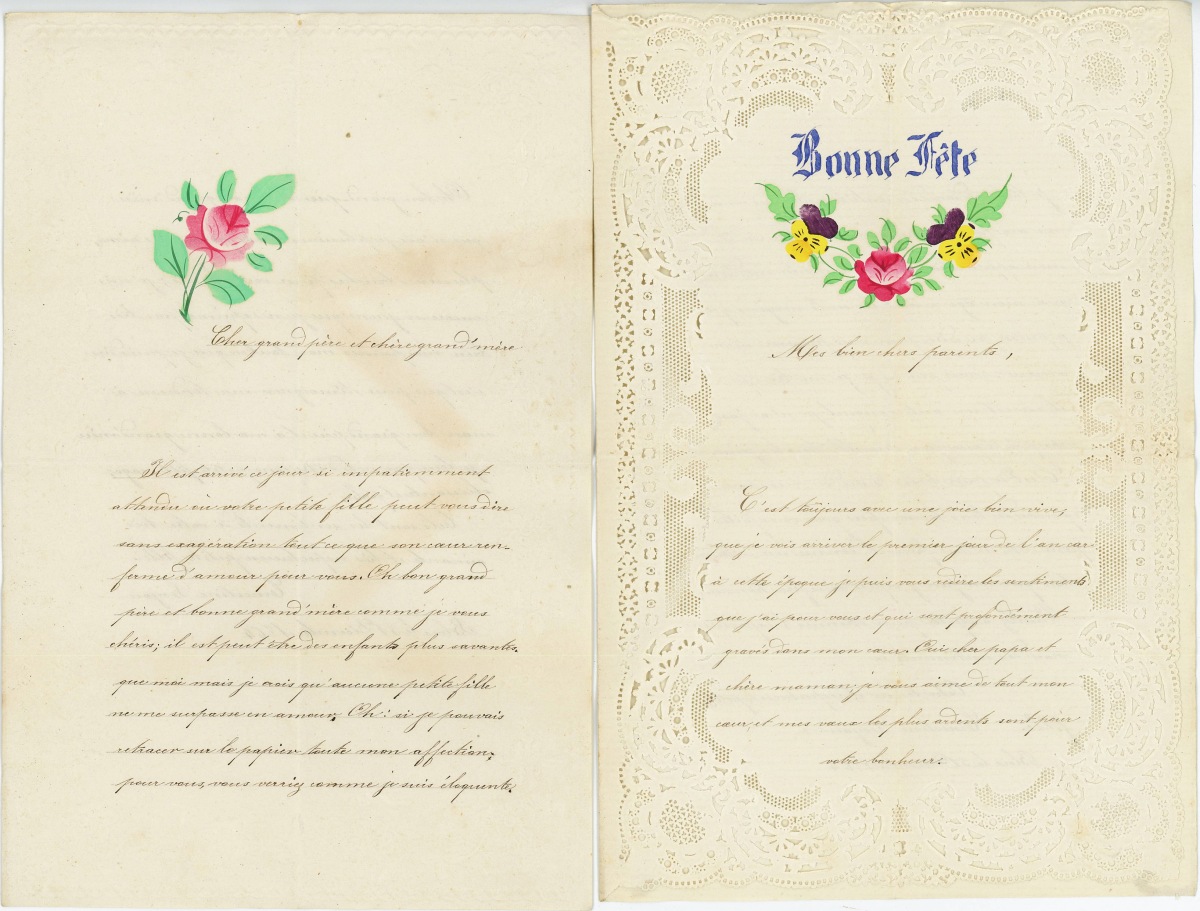 Cher grand père et chère grand'mère
Il est arrivé ce jour si impatiemment
attendu où votre petite fille peut vous dire
sans exagération tout ce que son cœur ren-
ferme d'amour pour vous. Oh bon grand
père et bonne grand'mère comme je vous
chéris; il est peut être des enfants plus savantes
que moi mais je crois qu'aucune petite fille
ne me surpasse en amour. Oh! si je pouvais
retracer sur le papier toute mon affection
pour vous, vous verriez comme je suis éloquente.
Bonne Fête
Mes bien chers parents,
C'est toujours avec une joie bien vive,
que je vois arriver le premier jour de l'an car
à cette époque je puis vous redire les sentiments
que j'ai pour vous et qui sont profondément
gravés dans mon cœur. Oui cher papa et
chère maman, je vous aime de tout mon
cœur, et mes vœux les plus ardents sont pour
votre bonheur.